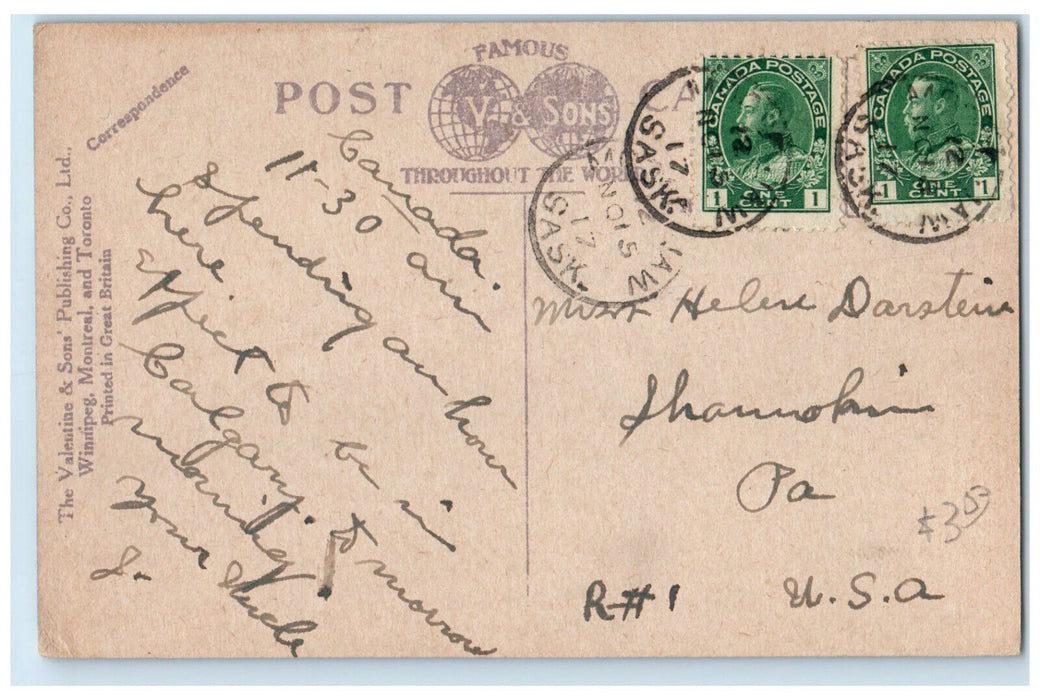 FAMOUS
POST CA
V. & SONS
THROUGHOUT THE WOR
Correspondence
The Valentine & Sons' Publishing Co., Ltd.,
Winnipeg, Montreal, and Toronto
Printed in Great Britain
CANADA POSTAGE
1 CENT 1
CANADA POSTAGE
1 ONE CENT 1
JAW
12
NO 15
17
SASK.
JAW
12
15
17
SASK.
JAW
12
SASK.
Canada
11-30
spending an hour
here
Expect to be in
Calgary to morrow
morning
your Uncle
J.
Miss Helen Darstein
Shamokin
Pa
R#1 U.S.A
$3.50